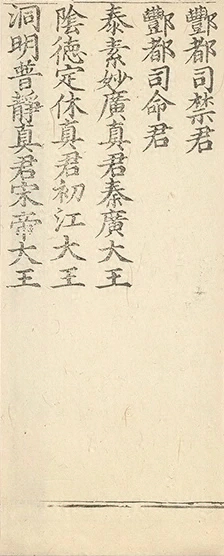 酆都司禁君
酆都司命君
泰素妙廣真君秦廣大王
陰德定休真君初江大王
洞明普靜真君宋帝大王